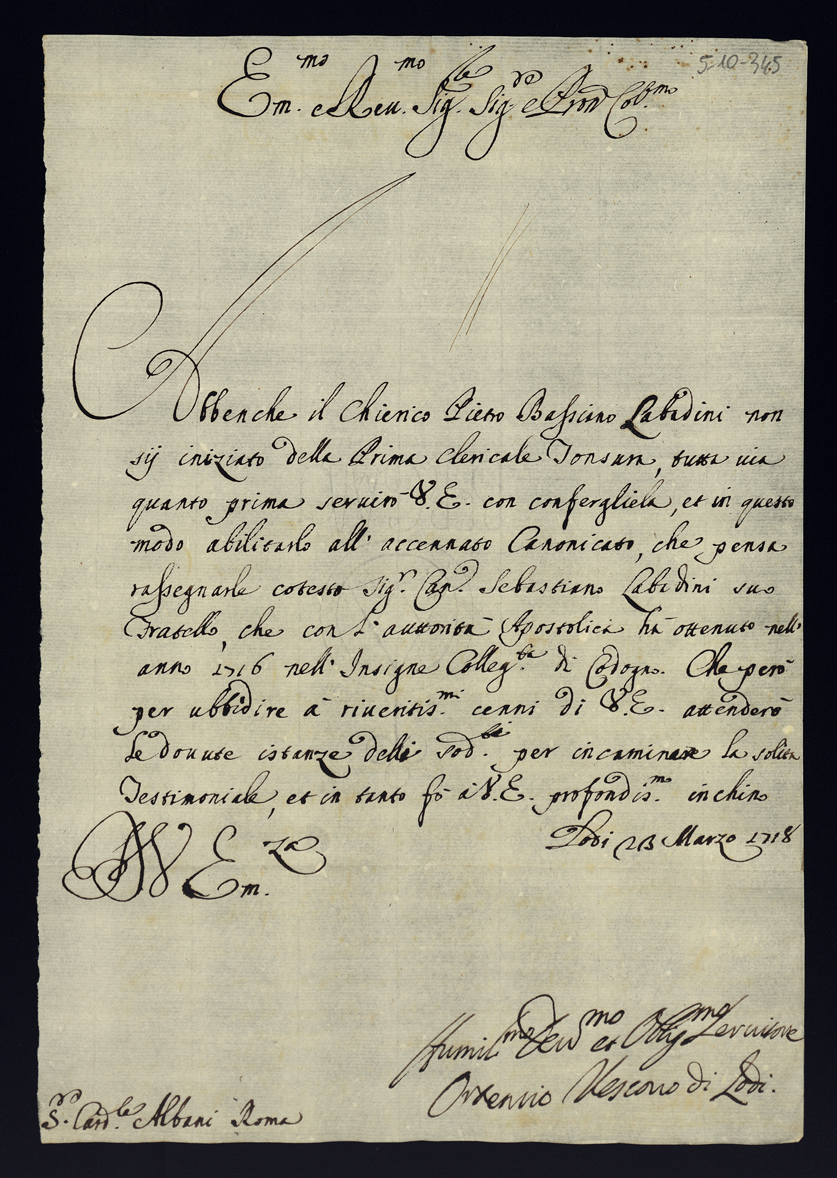 5-10-345
Em.mo e Reu.mo Sig.le Sig.re e Pron Col.mo
Abbenche il Chierico Pietro Bassiano Labadini non
sij iniziato della Prima Clericale Tonsura, tutta uia
quanto prima seruirò V.E. con confergliela, et in questo
modo abilitarlo all' accennato Canonicato, che pensa
rassegnarle cotesto Sig.r Can.o Sebastiano Labadini suo
Fratello, che con l'auttorità Apostolica hà ottenuto nell'
anno 1716 nell' Insigne Colleg.ta di Codogno. Che però
per ubbidire à riueritis.mi cenni di V.E. attenderò
le douute istanze delli sod.ti per incaminare la solita
Testimoniale, et in tanto fò à V.E. profondis.mo inchino
Lodi 23 Marzo 1718
Em.za
Humil.mo Deu.mo et Oblig.mo Seruitore
Ortensio Vescouo di Lodi.
S.re Card.le Albani Roma